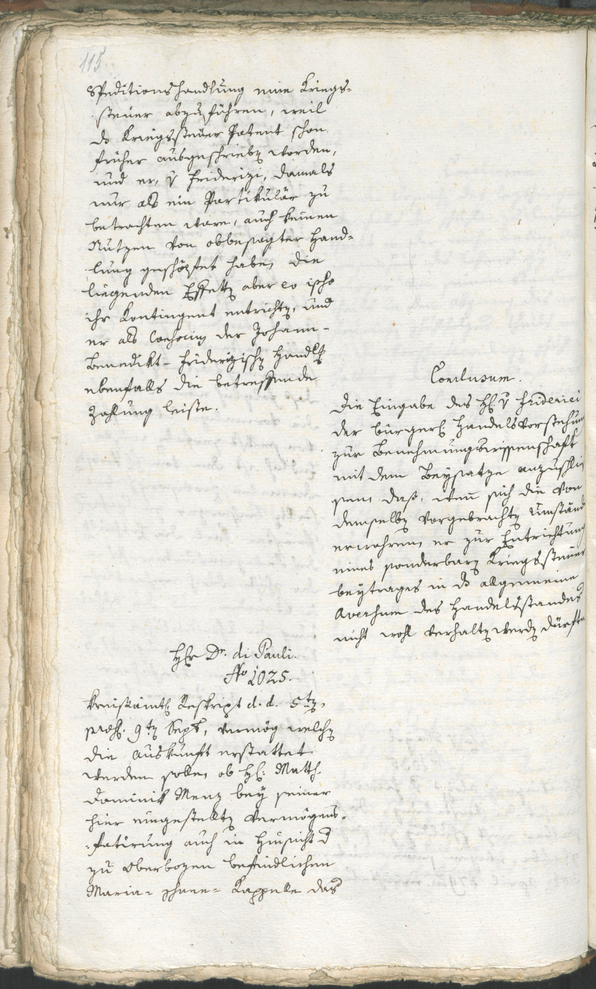 115
Speditionshandlung eine Kriegs-
steuer abzuführen, weil
ds Kriegssteuer Patent schon
früher ausgeschrieben worden,
und er, v Friderizi, damals
nur als ein Partikulär zu
betrachten ware, auch keinen
Nutzen von obbesagter Hand-
lung geschöpfet habe, die
liegenden Effetti aber eo ipso
ihr Kontingent entrichten, und
er als der Johann-
Benedikt- Friderizischen Handlg
ebenfalls die betreffende
Zahlung leiste.
Conclusum.
Die Eingabe des H v Friderici
der bürgerl Handelsvorstehung
zur Benehmungswissenschaft
mit dem Beysatze anzuschlies-
sen, daß, wenn sich die von
demselben vorgebrachten Umstände
erwahren, er zur Entrichtung
eines sonderbaren Kriegssteuer
beytrages in ds allgemeine
Aversum des Handelsstandes
nicht wohl verhalten werden dürfte
Hr Dr. di Pauli.
No 1025.
Kreisamtl Reskript d. d. 5ten
præs. 9ten Sept, vermög welchen
die Auskunft erstattet
werden solle, ob H: Matth.
Dominik Menz bey seiner
hier eingestellten Vermögens-
fatirung auch in Hinsicht d
zu Oberbozen befindlichen
Maria- Schnee- Kappelle das